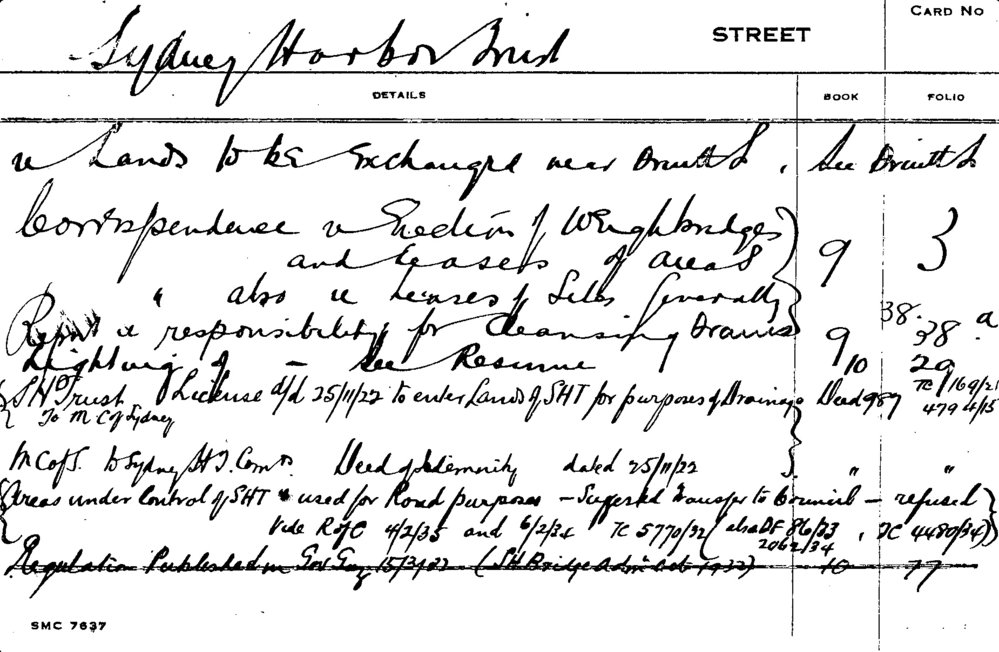 CARD NO
Sydney Harbor Trust STREET
DETAILS BOOK FOLIO
re Lands to be Exchanged near Druitt St. See Druitt St
Correspondence re Erection of Weighbridges
and Leases of areas 9 3
" also re Leases of Sites Generally
38.
Report re responsibility for Cleansing Drains 9 38 a
Lighting of — See Resume 10 29
SH Trust License d/d 25/11/22 to enter Lands of SHT for purposes of Drainage Deed 987 TC 1169/21
To M C of Sydney 479 4/15
M C of S. to Sydney H. T. Comrs. Deed of Indemnity dated 25/11/22 " "
Areas under Control of SHT & used for Road purposes — Suggested transfer to Council — refused
Vide R of C 4/2/35 and 6/2/34 TC 5770/32 (also DF 86/33, TC 4480/34)
2062/34
Regulation Published in Gov Gaz 15/3/32 (SH Bridge Adm. Act 1932) 10 77
SMC 7637